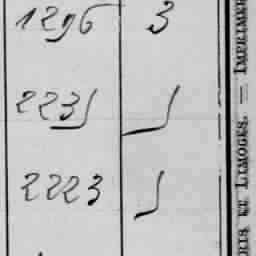 1296 3
223
2223
RIS ET LIMOGES. — IMPRIMER